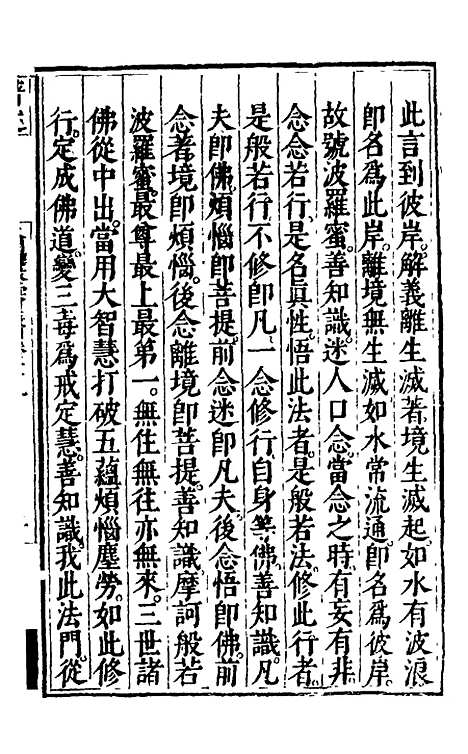 此言到彼岸。解義離生滅。著境生滅起。如水有波浪
即名爲此岸。離境無生滅。如水常流通。即名爲彼岸。
故號波羅蜜。善知識。迷人口念。當念之時。有妄有非。
念念若行。是名眞性。悟此法者。是般若法。修此行者。
是般若行。不修即凡。一念修行。自身等佛。善知識。凡
夫即佛。煩惱即菩提。前念迷即凡夫。後念悟即佛。前
念著境即煩惱。後念離境即菩提。善知識。摩訶般若
波羅蜜。最尊最上最第一。無住無往亦無來。三世諸
佛從中出。當用大智慧打破五蘊煩惱塵勞。如此修
行。定成佛道。變三毒爲戒定慧。善知識。我此法門。從